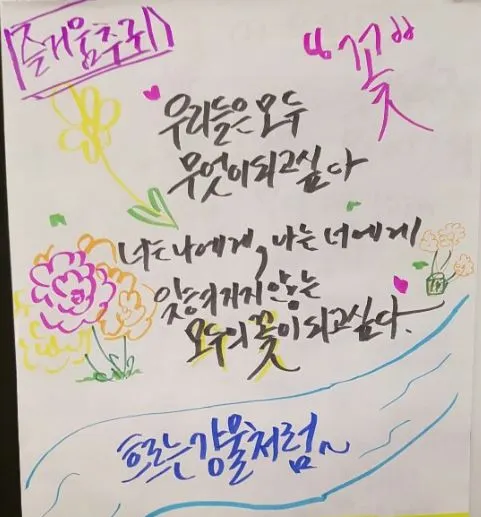 즐거움추구
"꽃"
우리들은 모두
무엇이 되고싶다
너는 나에게, 나는 너에게
잊혀지지 않는
모두의 꽃이 되고싶다.
흐르는 강물처럼~